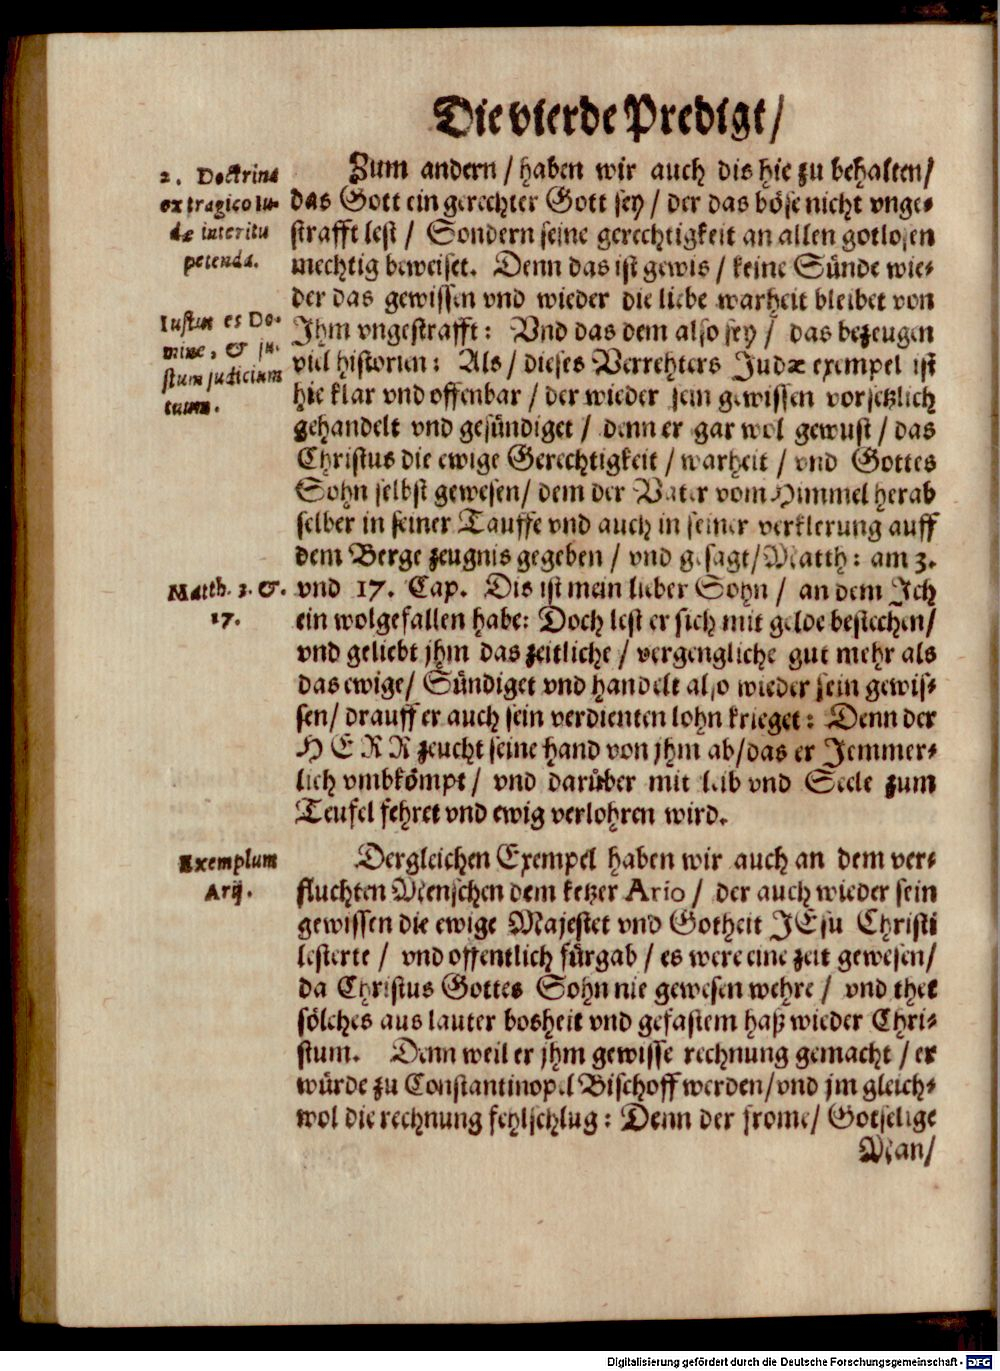 Die vierde Predigt/
2. Doctrina
ex tragico Iu-
dæ interitu
petenda.
Zum andern / haben wir auch dis hie zu behalten/
das Gott ein gerechter Gott sey / der das böse nicht vnge-
strafft lest / Sondern seine gerechtigkeit an allen gotlosen
mechtig beweiset. Denn das ist gewis / keine Sünde wie-
der das gewissen vnd wieder die liebe warheit bleibet von
Iustus es Do-
mine, & ju-
stum judicium
tuum.
Ihm vngestrafft: Vnd das dem also sey / das bezeugen
viel historien: Als / dieses Verrehters Judæ exempel ist
hie klar vnd offenbar / der wieder sein gewissen vorsetzlich
gehandelt vnd gesündiget / denn er gar wol gewust / das
Christus die ewige Gerechtigkeit / warheit / vnd Gottes
Sohn selbst gewesen/ dem der Vater vom Himmel herab
selber in seiner Tauffe vnd auch in seiner verklerung auff
dem Berge zeugnis gegeben / vnd gesagt/Matth: am 3.
Matth. 3. &.
17.
vnd 17. Cap. Dis ist mein lieber Sohn / an dem Ich
ein wolgefallen habe: Doch lest er sich mit gelde bestechen/
vnd geliebt jhm das zeitliche / vergengliche gut mehr als
das ewige/ Sündiget vnd handelt also wieder sein gewis-
sen/ drauff er auch sein verdienten lohn krieget: Denn der
HERR zeucht seine hand von jhm ab/das er Jemmer-
lich vmbkömpt / vnd darüber mit leib vnd Seele zum
Teufel fehret vnd ewig verlohren wird.
Exemplum
Arij.
Dergleichen Exempel haben wir auch an dem ver-
fluchten Menschen dem ketzer Ario / der auch wieder sein
gewissen die ewige Majestet vnd Gotheit JEsu Christi
lesterte / vnd offentlich fürgab / es were eine zeit gewesen/
da Christus Gottes Sohn nie gewesen wehre / vnd thet
sölches aus lauter bosheit vnd gefastem haß wieder Chri-
stum. Denn weil er jhm gewisse rechnung gemacht / er
würde zu Constantinopel Bischoff werden/vnd jm gleich-
wol die rechnung fehlschlug: Denn der frome/ Gotselige
Man/
Digitalisierung gefördert durch die Deutsche Forschungsgemeinschaft - DFG